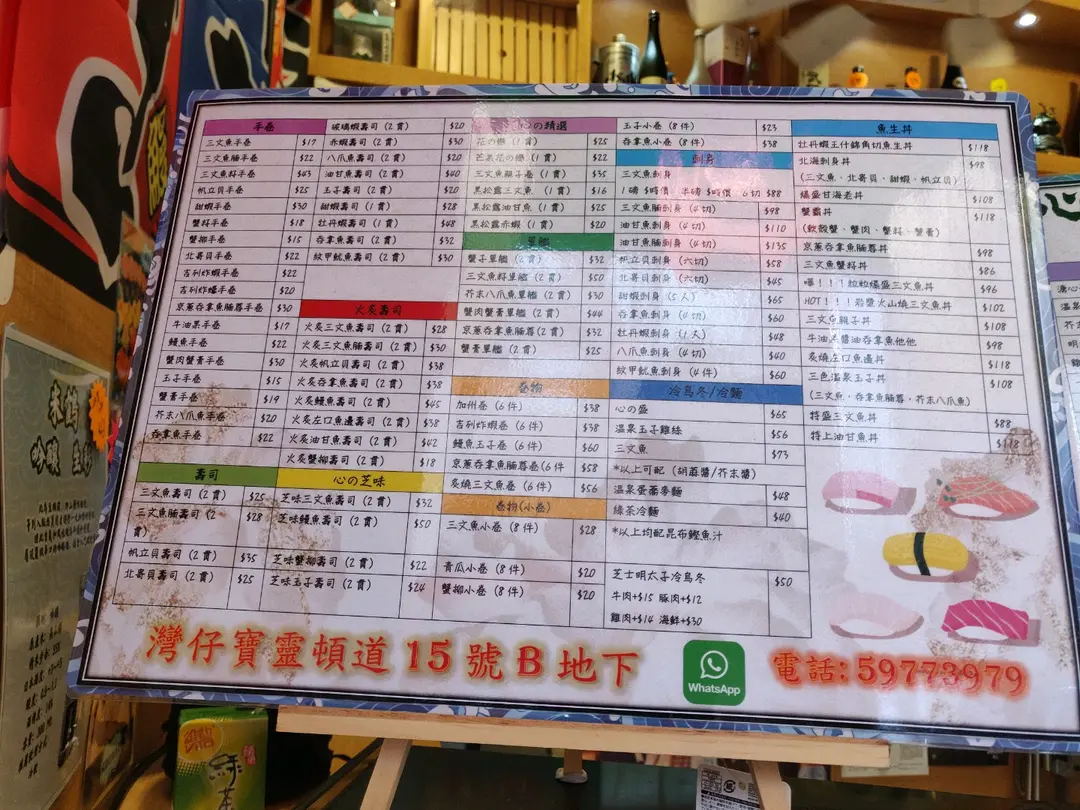 手卷
三文魚手卷 $17
三文魚腩手卷 $22
三文魚籽手卷 $43
帆立貝手卷 $25
甜蝦手卷 $30
蟹籽手卷 $18
蟹柳手卷 $15
北寄貝手卷 $22
吉列炸蝦手卷 $22
吉列炸蠔手卷 $20
京蔥吞拿魚腩蓉手卷 $30
牛油果手卷 $17
鰻魚手卷 $22
蟹肉蟹膏手卷 $30
玉子手卷 $15
蟹膏手卷 $19
芥末八爪魚手卷 $20
吞拿魚手卷 $22
壽司
三文魚壽司 (2貫) $25
三文魚腩壽司 (2貫) $28
帆立貝壽司 (2貫) $35
北寄貝壽司 (2貫) $25
玻璃蝦壽司 (2貫) $20
赤蝦壽司 (2貫) $30
八爪魚壽司 (2貫) $20
油甘魚壽司 (2貫) $40
玉子壽司 (2貫) $20
甜蝦壽司 (2貫) $28
牡丹蝦壽司 (1貫) $48
吞拿魚壽司 (2貫) $32
紋甲魷魚壽司 (2貫) $30
火炙壽司
火炙三文魚壽司 (2貫) $28
火炙三文魚腩壽司 (2貫) $30
火炙帆立貝壽司 (2貫) $38
火炙吞拿魚壽司 (2貫) $38
火炙鰻魚壽司 (2貫) $45
火炙左口魚邊壽司 (2貫) $38
火炙油甘魚壽司 (2貫) $42
火炙蟹柳壽司 (2貫) $18
心の芝味
芝味三文魚壽司 (2貫) $32
芝味鰻魚壽司 (2貫) $50
芝味蟹柳壽司 (2貫) $22
芝味玉子壽司 (2貫) $24
心の精選
花の戀 (1貫) $25
芒果花の戀 (1貫) $22
三文魚親子卷 (1貫) $35
黑松露三文魚 (1貫) $16
黑松露油甘魚 (1貫) $25
黑松露赤蝦 (1貫) $20
軍艦
蟹子軍艦 (2貫) $32
三文魚籽軍艦 (2貫) $50
芥末八爪魚軍艦 (2貫) $30
蟹肉蟹膏軍艦 (2貫) $44
京蔥吞拿魚腩蓉(2貫) $32
蟹膏軍艦 (2貫) $25
卷物
加州卷 (6件) $38
吉列炸蝦卷 (6件) $38
鰻魚玉子卷 (6件) $60
京蔥吞拿魚腩蓉卷(6件 $58
炙燒三文魚卷 (6件) $56
卷物(小卷)
三文魚小卷 (8件) $28
青瓜小卷 (8件) $20
蟹柳小卷 (8件) $20
玉子小卷 (8件) $23
吞拿魚小卷 (8件) $38
刺身
三文魚刺身
1磅 $時價 半磅 $時價 6切 $88
三文魚腩刺身 (4切) $98
油甘魚刺身 (4切) $110
油甘魚腩刺身 (4切) $135
帆立貝刺身 (六切) $58
北寄貝刺身 (六切) $45
甜蝦刺身 (5人) $65
吞拿魚刺身 (4切) $60
牡丹蝦刺身 (1人) $48
八爪魚刺身 (4切) $40
紋甲魷魚刺身 (4件) $60
冷烏冬/冷麵
心の盛 $65
溫泉玉子雞絲 $56
三文魚 $73
*以上可配 (胡麻醬/芥末醬)
溫泉蛋蕎麥麵 $48
綠茶冷麵 $40
*以上均配昆布鰹魚汁
芝士明太子冷烏冬 $50
牛肉+$15 豚肉+$12
雞肉+$14 海鮮+$30
魚生丼
牡丹蝦王什錦角切魚生丼 $118
北海刺身丼 $98
(三文魚、北寄貝、甜蝦、帆立貝)
爆盛甘海老丼 $108
蟹霸丼 $118
(軟殼蟹、蟹肉、蟹籽、蟹膏)
京蔥吞拿魚腩蓉丼 $98
三文魚蟹籽丼 $86
嘩!!!粒粒爆盛三文魚丼 $96
HOT!!!岩鹽火山燒三文魚丼 $102
三文魚親子丼 $108
牛油果醬油吞拿魚他他 $98
炙燒左口魚邊丼 $118
三色溫泉玉子丼 $108
(三文魚、吞拿魚腩蓉、芥末八爪魚)
特盛三文魚丼 $88
特上油甘魚丼 $118
灣仔寶靈頓道 15 號 B 地下
WhatsApp
電話: 59773979